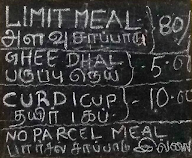 LIMIT MEAL } 80/
அளவு சாப்பாடு
GHEE DHAL - 5.00
பருப்பு நெய்
CURD 1 CUP - 10.00
தயிர் 1 கப்
NO PARCEL MEAL
பார்சல் சாப்பாடு இல்லை